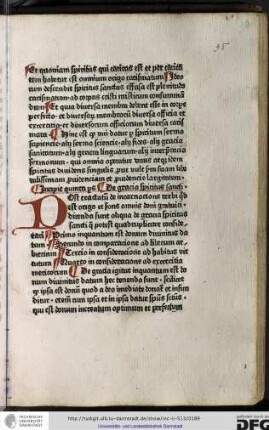 95
Et quoniam spiritus qui caritas est et per
tem habetur est omnium origo carismatum
deo
descendit spiritus sanctus est plenitudo
carismatum ad corpus cristi misticum
dum Et quia diversa membra debent esse in corpe
perfecto et diversorum membrorum diversa officia et
exercitia et diversorum officiorum diversa caris
mata Hinc est qd alii datur per spiritum sermo
sapiencie alii sermo sciencie alii fides alii gracia
alii genera linguarum alii
sermonum qui omnia operatur unus atqz idem
spiritus dividens singulis put vult scdm suam
prudenciam et prudencie largitatem
Incipit quinta ps De gracia spiritus sancti
Post tractatum de incarnacione verbi qd
est origo et fons omnis doni gratuiti
dicenda sunt aliqua de gracia spiritus
sancti que potest quadrupliciter conside
rari Primo inquantum est donum divinitus da
tum Secundo in comparacione ad liberum ar
bitrium Tercio in consideracione ad habitus vir
tutum Quarto in consideracione ad exercitia
meritorum De gracia igitur inquantum est do
num divinitus datum hec tenenda sunt scilicet
qd ipsa est donum quod a deo immediate donatur et infun
ditur etenim cum ipsa et in ipsa datur spus scus
qui est donum increatum optimum et perfectum
http://tudigit.ulb.tu-darmstadt.de/show/inc-ii-513/0189
Universitäts- und Landesbibliothek Darmstadt
DFG